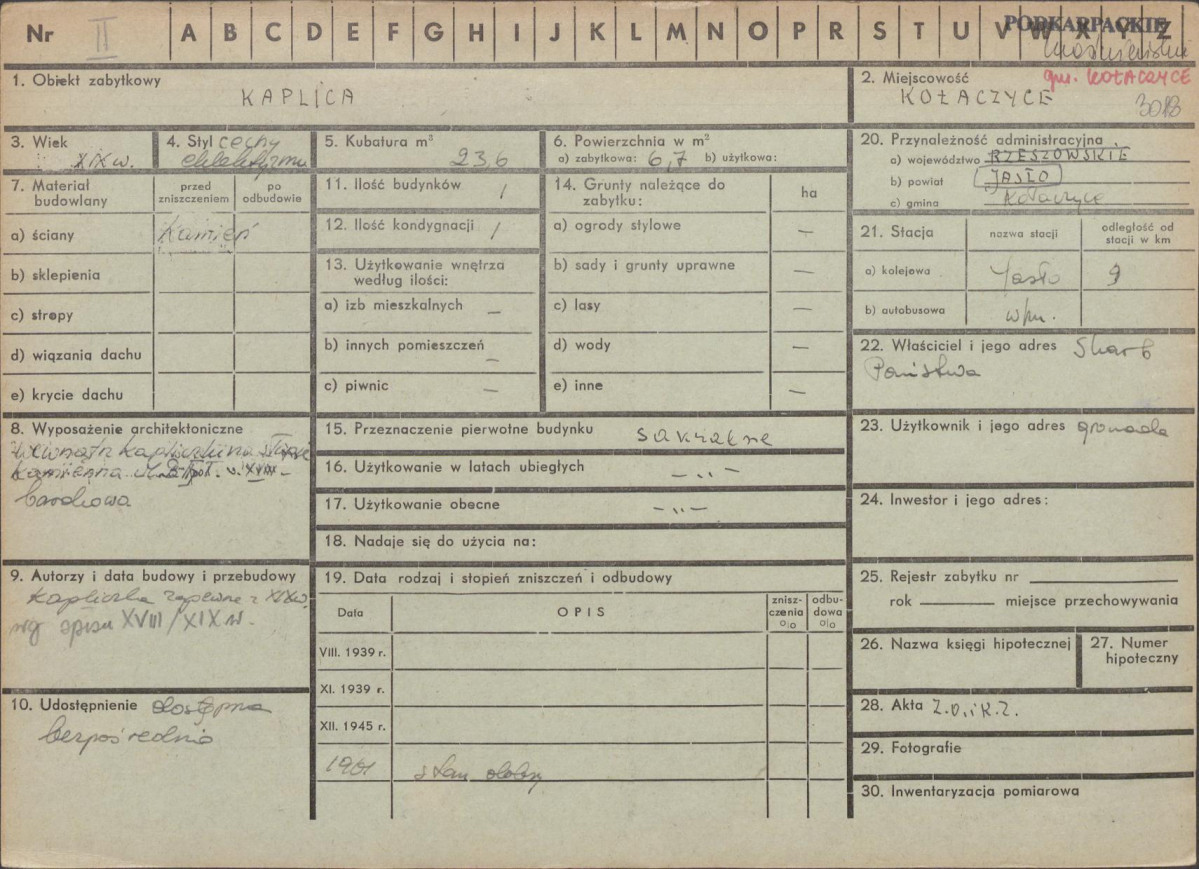 Nr II A B C D E F G H I J K L M N O P R S T U V W X Y Z
PODKARPACKIE
1. Obiekt zabytkowy
KAPLICA
2. Miejscowość gm. KOŁACZYCE
KOŁACZYCE 3013
3. Wiek
XIX w.
4. Styl cechy
eklektyzmu
5. Kubatura m³
23,6
6. Powierzchnia w m²
a) zabytkowa: 6,7 b) użytkowa:
7. Materiał budowlany
przed zniszczeniem
po odbudowie
a) ściany Kamień
b) sklepienia
c) stropy
d) wiązania dachu
e) krycie dachu
8. Wyposażenie architektoniczne
wewnątrz kapliczki
kamienna XVIII -
barokowa
9. Autorzy i data budowy i przebudowy
Kapliczka zapewne z XIX w.
wg spisu XVIII/XIX w.
10. Udostępnienie dostępna
bezpośrednio
11. Ilość budynków 1
12. Ilość kondygnacji 1
13. Użytkowanie wnętrza
według ilości:
a) izb mieszkalnych –
b) innych pomieszczeń –
c) piwnic –
14. Grunty należące do
zabytku: ha
a) ogrody stylowe –
b) sady i grunty uprawne –
c) lasy –
d) wody –
e) inne –
15. Przeznaczenie pierwotne budynku sakralne
16. Użytkowanie w latach ubiegłych –„–
17. Użytkowanie obecne –„–
18. Nadaje się do użycia na:
19. Data rodzaj i stopień zniszczeń i odbudowy
Data OPIS znisz-czenia o|o odbu-dowa o|o
VIII. 1939 r.
XI. 1939 r.
XII. 1945 r.
1961 stan dobry
20. Przynależność administracyjna
a) województwo RZESZOWSKIE
b) powiat JASŁO
c) gmina Kołaczyce
21. Stacja nazwa stacji odległość od stacji w km
a) kolejowa Jasło 9
b) autobusowa w/m.
22. Właściciel i jego adres Skarb
Państwa
23. Użytkownik i jego adres gromada
24. Inwestor i jego adres:
25. Rejestr zabytku nr
rok miejsce przechowywania
26. Nazwa księgi hipotecznej
27. Numer
hipoteczny
28. Akta Z.O.i K.Z.
29. Fotografie
30. Inwentaryzacja pomiarowa